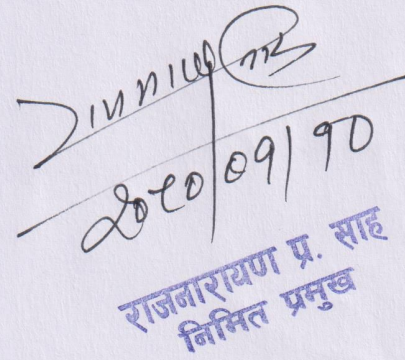 २०८०/०१/१०
राजनारायण प्र. साह
निमित प्रमुख